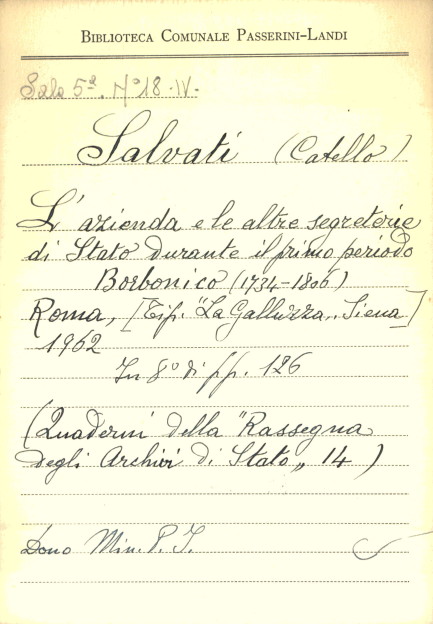 BIBLIOTECA COMUNALE PASSERINI-LANDI
Sala 5ª. Nº 18. IV.
Salvati (Catello)
L'azienda e le altre segreterie
di Stato durante il primo periodo
Borbonico (1734-1806)
Roma, [Tip. "La Galluzza„ Siena]
1962
In 8º di pp. 126
(Quaderni della "Rassegna
degli Archivi di Stato„ 14)
Dono Min. P. I.